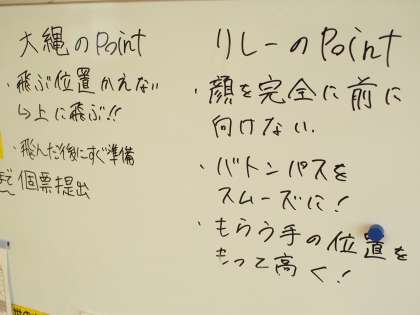 大縄のPoint
・飛ぶ位置かえない
↳上に飛ぶ!!
・飛んだ後にすぐ準備
まで 個票提出
リレーのPoint
・顔を完全に前に
向けない.
・バトンパスを
スムーズに!
・もらう手の位置を
もって高く!